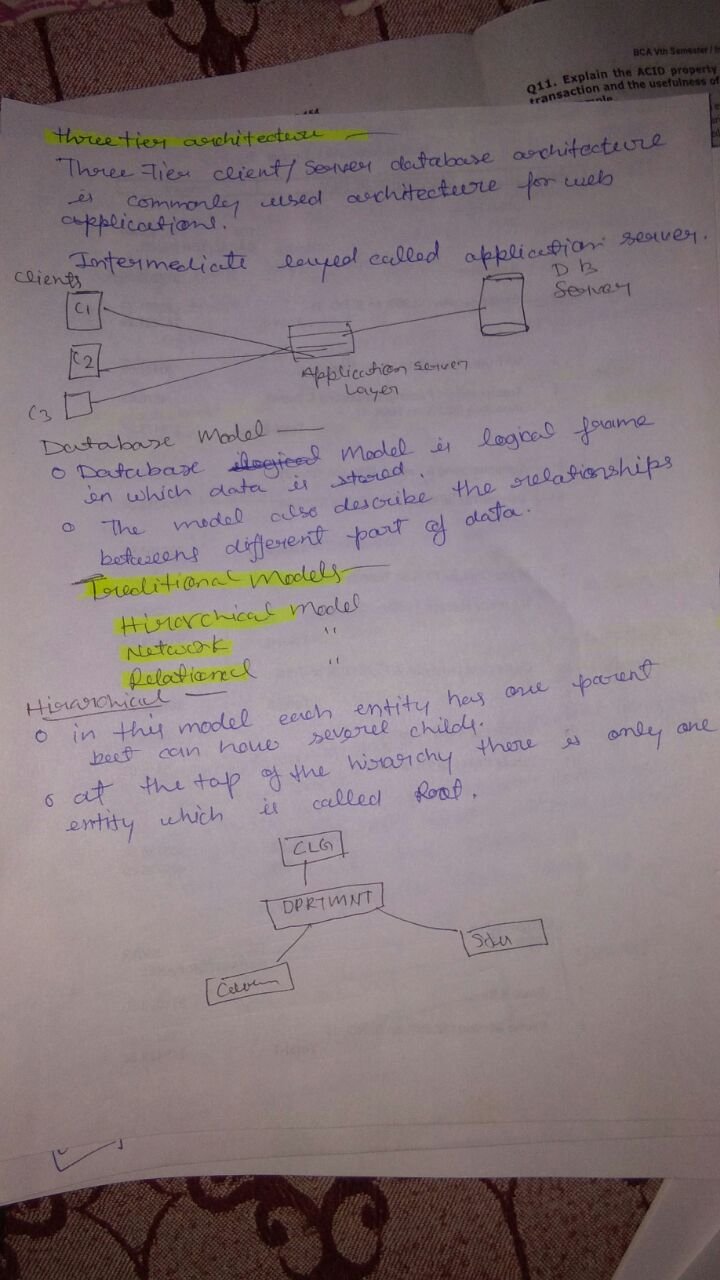 BCA Vth Semester /
Q11. Explain the ACID property
transaction and the usefulness of
three tier architecture —
Three Tier client/Server database architecture
is commonly used architecture for web
applications.
Intermediate layed called application server.
Clients
D B
Server
C1
C2
C3
Application server
Layer
Database Model —
o Database Model is logical frame
in which data is stored.
o The model also describe the relationships
betweens different part of data.
Treditional Models —
Hirarchical Model
Network "
Relational "
Hirarchical —
o in this model each entity has one parent
but can have several childs.
o at the top of the hirarchy there is only one
entity which is called Root.
CLG
DPRTMNT